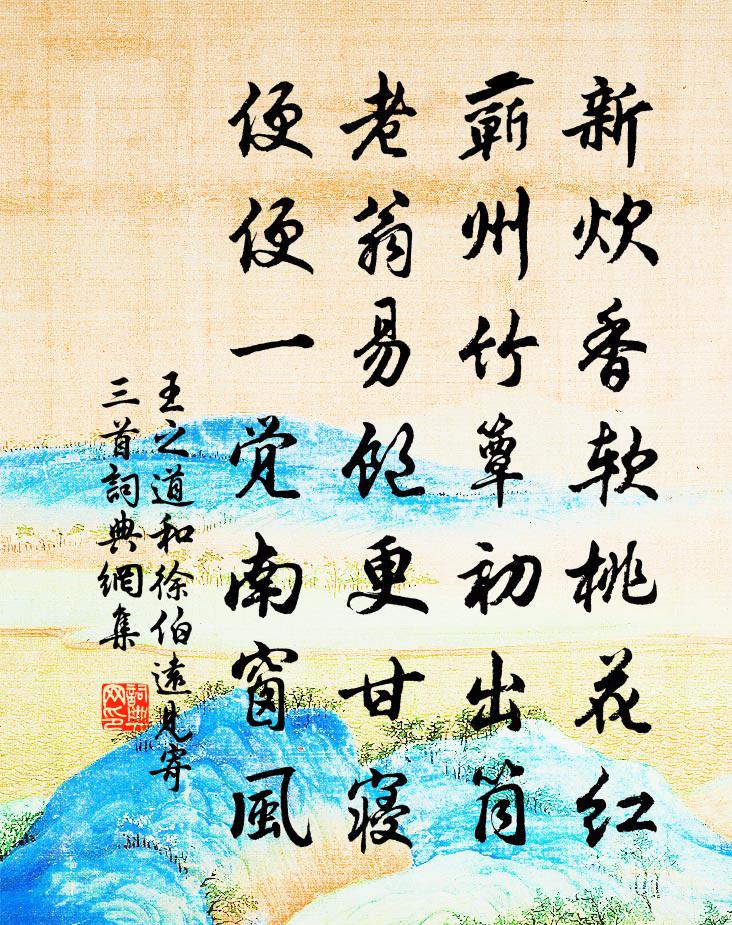 新炊香软桃花红
蕲州竹簟初出筒
老翁易饱更甘寝
便便一觉南窗風
王之道和徐伯遠見寄
三首詞典網集
詞典网印